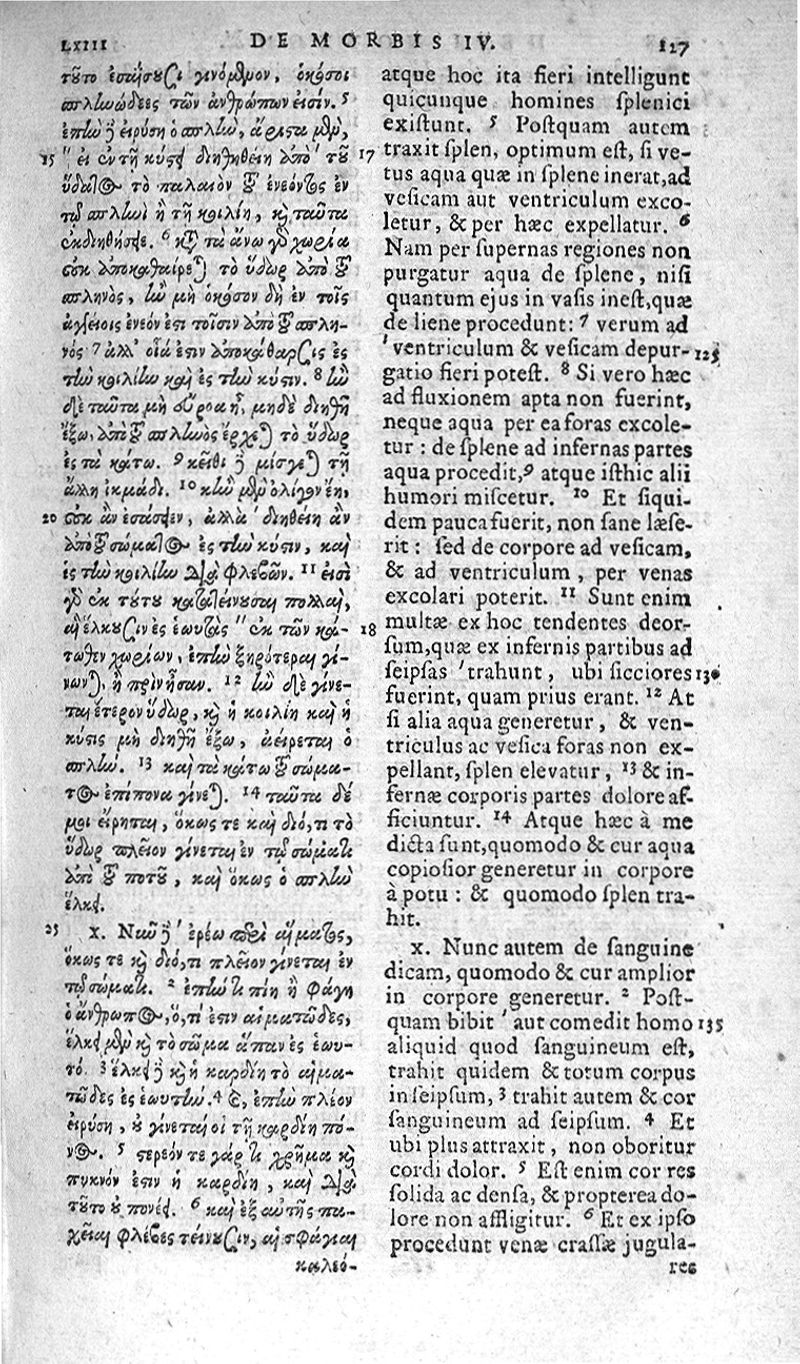 LXIII DE MORBIS IV. 127
τοῦτο ἐπαΐουσι γινόμενον, ὁκόσοι
σπληνώδεες τῶν ἀνθρώπων εἰσίν. 5
ἐπὴν δὲ εἰρύσῃ ὁ σπλὴν, ἄριστα μὲν,
15 " εἰ ἐν τῇ κύστι διηθηθείη ἀπὸ ' τοῦ
ὕδατος τὸ παλαιὸν τοῦ ἐνεόντος ἐν
τῷ σπληνὶ ἢ τῇ κοιλίῃ, καὶ ταῦτα
ἐκδιηθήσει. 6 κατὰ τὰ ἄνω γὰρ χωρία
οὐκ ἀποκαθαίρεται τὸ ὕδωρ ἀπὸ τοῦ
σπληνὸς, ἢν μὴ ὁκόσον δὴ ἐν τοῖς
ἀγγείοις ἐνεόν ἐστι τοῖσιν ἀπὸ τοῦ σπλη-
νός· 7 ἀλλ' οἵα ἐστιν ἀποκάθαρσις ἐς
τὴν κοιλίην καὶ ἐς τὴν κύστιν. 8 ἢν
δὲ ταῦτα μὴ εὔροα ᾖ, μηδὲ διηθῇ
ἔξω, ἀπὸ τοῦ σπληνὸς ἔρχεται τὸ ὕδωρ
ἐς τὰ κάτω. 9 κεῖθι δὲ μίσγεται τῇ
ἄλλῃ ἰκμάδι. 10 κἢν μὲν ὀλίγον ἔῃ,
20 οὐκ ἂν ἐσάσειεν, ἀλλὰ ' διηθείη ἂν
ἀπὸ τοῦ σώματος ἐς τὴν κύστιν, καὶ
ἐς τὴν κοιλίην διὰ φλεβῶν. 11 εἰσὶ
γὰρ ἐκ τούτου κατατείνουσαι πολλαὶ,
αἳ ἕλκουσιν ἐς ἑωυτὰς " ἐκ τῶν κά-
τωθεν χωρίων, ἐπὴν ξηρότεραι γί-
νωνται, ἢ πρὶν ἦσαν. 12 ἢν δὲ γίνε-
ται ἕτερον ὕδωρ, καὶ ἡ κοιλίη καὶ ἡ
κύστις μὴ διηθῇ ἔξω, ἀείρεται ὁ
σπλήν. 13 καὶ τὰ κάτω τοῦ σώμα-
τος ἐπίπονα γίνεται. 14 ταῦτα δέ
μοι εἴρηται, ὅκως τε καὶ διό,τι τὸ
ὕδωρ πλεῖον γίνεται ἐν τῷ σώματι
ἀπὸ τοῦ ποτοῦ, καὶ ὅκως ὁ σπλὴν
ἕλκει.
25 X. Νῦν δὲ ' ἐρέω περὶ αἵματος,
ὅκως τε καὶ διό,τι πλεῖον γίνεται ἐν
τῷ σώματι. 2 ἐπήν τι πίῃ ἢ φάγῃ
ὁ ἄνθρωπος, ὅ,τί ἐστιν αἱματῶδες,
ἕλκει μὲν καὶ τὸ σῶμα ἅπαν ἐς ἑωυ-
τό. 3 ἕλκει δὲ καὶ ἡ καρδίη τὸ αἱμα-
τῶδες ἐς ἑωυτήν. 4 καὶ, ἐπὴν πλέον
εἰρύσῃ, οὐ γίνεταί οἱ τῇ καρδίῃ πό-
νος. 5 στερεόν τε γάρ τι χρῆμα καὶ
πυκνόν ἐστιν ἡ καρδίη, καὶ διὰ
τοῦτο οὐ πονέει. 6 καὶ ἐξ αὐτῆς πα-
χεῖαι φλέβες τείνουσιν, αἱ σφάγιαι
καλεό-
atque hoc ita fieri intelligunt
quicunque homines splenici
existunt. 5 Postquam autem
17 traxit splen, optimum est, si ve-
tus aqua quæ in splene inerat, ad
vesicam aut ventriculum exco-
letur, & per hæc expellatur. 6
Nam per supernas regiones non
purgatur aqua de splene, nisi
quantum ejus in vasis inest, quæ
de liene procedunt: 7 verum ad
' ventriculum & vesicam depur- 125
gatio fieri potest. 8 Si vero hæc
ad fluxionem apta non fuerint,
neque aqua per ea foras excole-
tur : de splene ad infernas partes
aqua procedit, 9 atque isthic alii
humori miscetur. 10 Et siqui-
dem pauca fuerit, non sane læse-
rit : sed de corpore ad vesicam,
& ad ventriculum, per venas
excolari poterit. 11 Sunt enim
18 multæ ex hoc tendentes deor-
sum, quæ ex infernis partibus ad
seipsas ' trahunt, ubi sicciores 130
fuerint, quam prius erant. 12 At
si alia aqua generetur, & ven-
triculus ac vesica foras non ex-
pellant, splen elevatur, 13 & in-
fernæ corporis partes dolore af-
ficiuntur. 14 Atque hæc à me
dicta sunt, quomodo & cur aqua
copiosior generetur in corpore
à potu : & quomodo splen tra-
hit.
X. Nunc autem de sanguine
dicam, quomodo & cur amplior
in corpore generetur. 2 Post-
quam bibit ' aut comedit homo 135
aliquid quod sanguineum est,
trahit quidem & totum corpus
in seipsum, 3 trahit autem & cor
sanguineum ad seipsum. 4 Et
ubi plus attraxit, non oboritur
cordi dolor. 5 Est enim cor res
solida ac densa, & propterea do-
lore non affligitur. 6 Et ex ipso
procedunt venæ crassæ jugula-
res